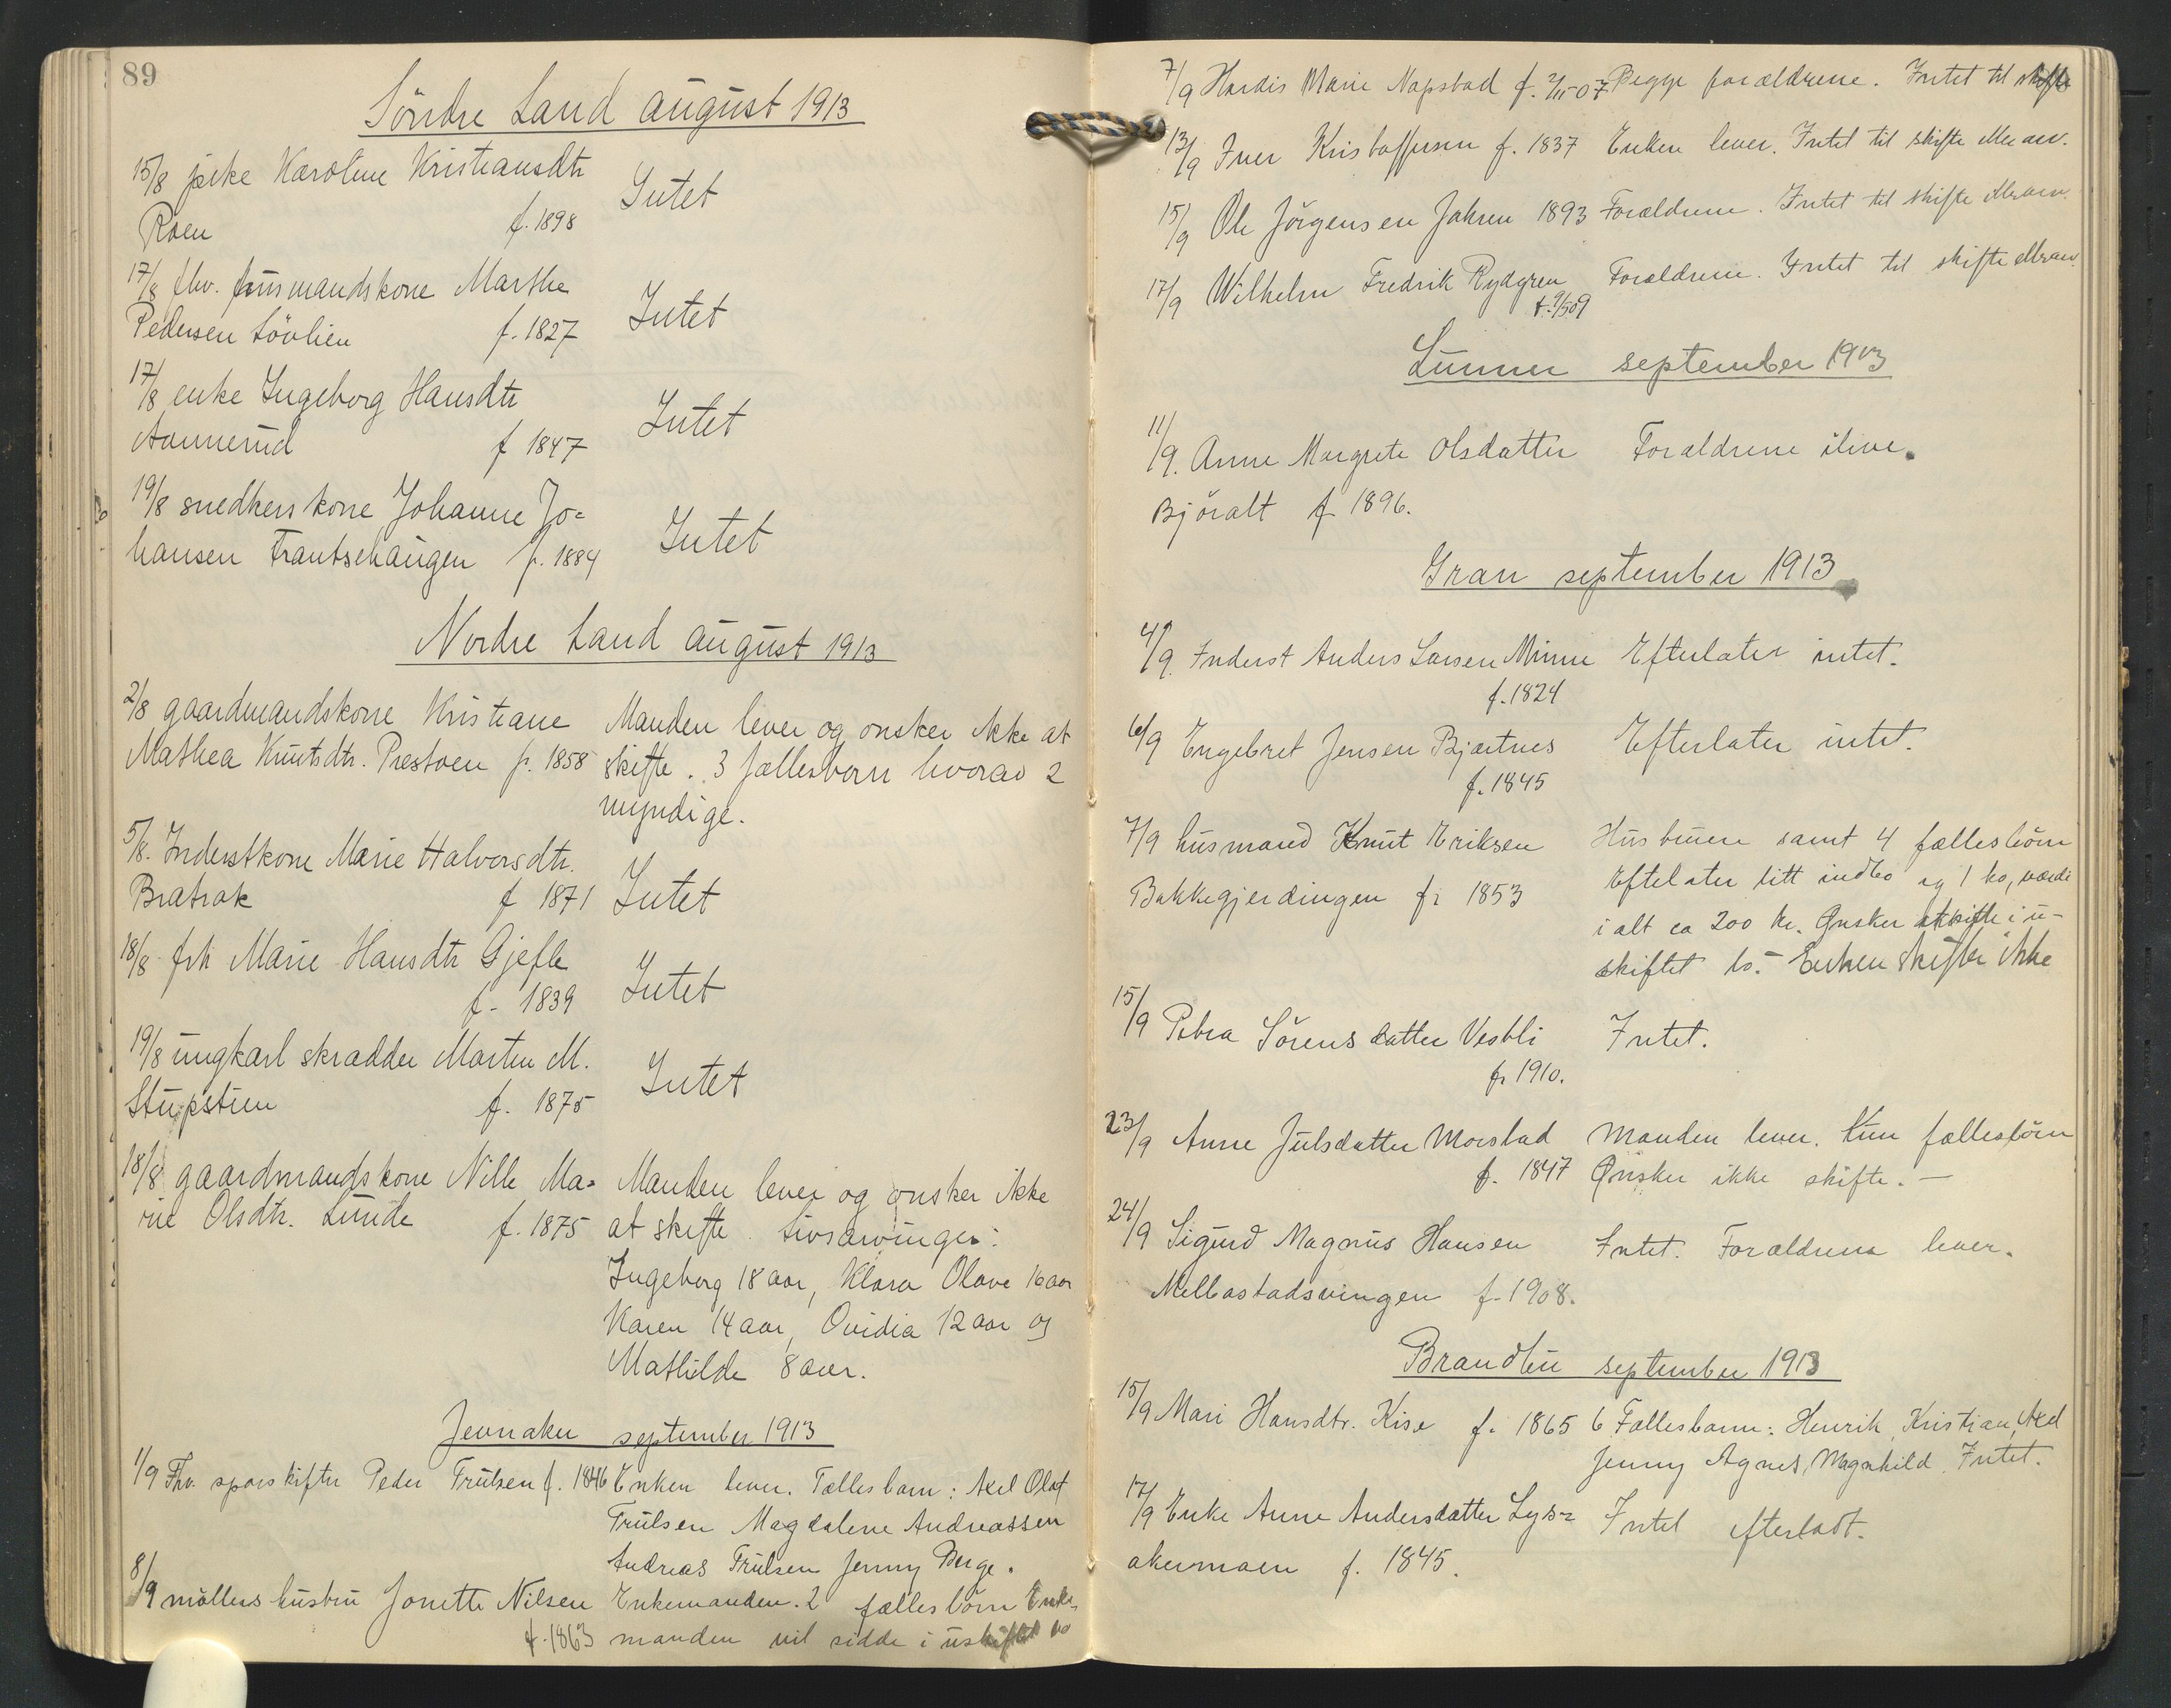 89
Söndre Land august 1913
15/8 pike Karoline Kristiansdtr Intet
Roen f. 1898
17/8 fhv. husmandskone Marthe Intet
Pedersen Lövlien f. 1827
17/8 enke Ingeborg Hansdtr Intet
Aannerud f 1847
19/8 snedkers kone Johanne Jo-
hansen Frantsehaugen f. 1884 Intet
Nordre Land august 1913
2/8 gaardmandskone Kristiane Manden lever og ønsker ikke at
Mathea Knutsdtr. Prestøen f. 1858 skifte. 3 fællesbørn hvorav 2
myndige.
5/8. Inderstkone Marie Halvorsdtr.
Bratrak f 1871 Intet
18/8 frk Marie Hansdtr Gjefle Intet
f. 1839
19/8 ungkarl skrædder Morten M. Intet
Stupstuen f. 1875
18/8 gaardmandskone Nille Ma- Manden lever og ønsker ikke
rie Olsdtr. Lunde f. 1875 at skifte. Livsarvinger:
Ingeborg 18 aar, Klara Olave 16 aar
Karen 14 aar, Ovidia 12 aar og
Mathilde 8 aar.
Jevnaker september 1913
1/9 Fhv. sporskifter Peder Trulsen f. 1846 Enken lever. Fællesbarn: Axel Olaf
Trulsen Magdalene Andreassen
Andreas Trulsen Jenny Berge.
8/9 møllers hustru Jonette Nilsen Enkemanden. 2 fællesbörn Enke-
f. 1863 manden vil sidde i uskiftet bo
7/9 Hardis Marie Napstad f. 2/11 07 Begge forældrene. Intet til skifte
13/9 Iver Kristoffersen f. 1837 Enken lever. Intet til skifte eller arv.
15/9 Ole Jörgensen Jahren 1893 Forældrene. Intet til skifte eller arv.
17/9 Wilhelm Fredrik Rydgren Forældrene. Intet til skifte eller arv.
f. 9/5 09
Lunner september 1913
11/9. Anne Margrete Olsdatter Forældrene ilive.
Björalt f 1896.
Gran september 1913
4/9. Inderst Anders Larsen Minne Efterlater intet.
f. 1824
6/9 Engebret Jensen Bjærtnes Efterlater intet.
f. 1845
7/9 husmand Knut Eriksen Hustruen samt 4 fællesbörn
Bakkegjerdingen f. 1853 Eftelater litt indbo og 1 ko, værdi
i alt ca 200 kr. Ønsker at skifte i u-
skiftet bo.- Enken skifter ikke
15/9 Petra Sörensdatter Vestli Intet.
f. 1910.
23/9 Anne Julsdatter Morstad Manden lever. Kun fællesbörn
f. 1847 Ønsker ikke skifte. -
24/9 Sigurd Magnus Hansen Intet. Forældrene lever.
Melbostadsvingen f. 1908.
Brandbu september 1913
15/9 Mari Hansdtr. Kise f. 1865 6 Fællesbarn: Henrik, Kristian, Axel
Jenny Agnes, Magnhild. Intet.
17/9 Enke Anne Andersdatter Lys- Intet efterladt.
akermoen f. 1845.